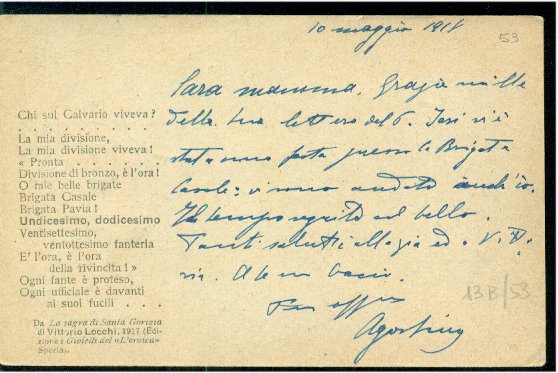 10 maggio 1918
53
Cara mamma, Grazie mille
della tua lettera del 6. Ieri vi è
stata una festa presso la Brigata
Casale: vi sono andato anch'io.
Il tempo seguita ad bello.
Tanti saluti alla zia ed a V. D.
A te un bacio.
Tuo aff.mo
Agostino
13B/53
Chi sul Calvario viveva?
. . . . . . . . . . . . . .
La mia divisione,
La mia divisione viveva!
« Pronta . . . . . . . . .
Divisione di bronzo, è l'ora!
O mie belle brigate
Brigata Casale
Brigata Pavia!
Undicesimo, dodicesimo
Ventisettesimo,
ventottesimo fanteria
E' l'ora, è l'ora
della rivincita! »
Ogni fante è proteso,
Ogni ufficiale è davanti
ai suoi fucili . . . .
Da La sagra di Santa Gorizia
di Vittorio Locchi, 1917 (Edi-
zione i Gioielli de «L'eroica»
Spezia).